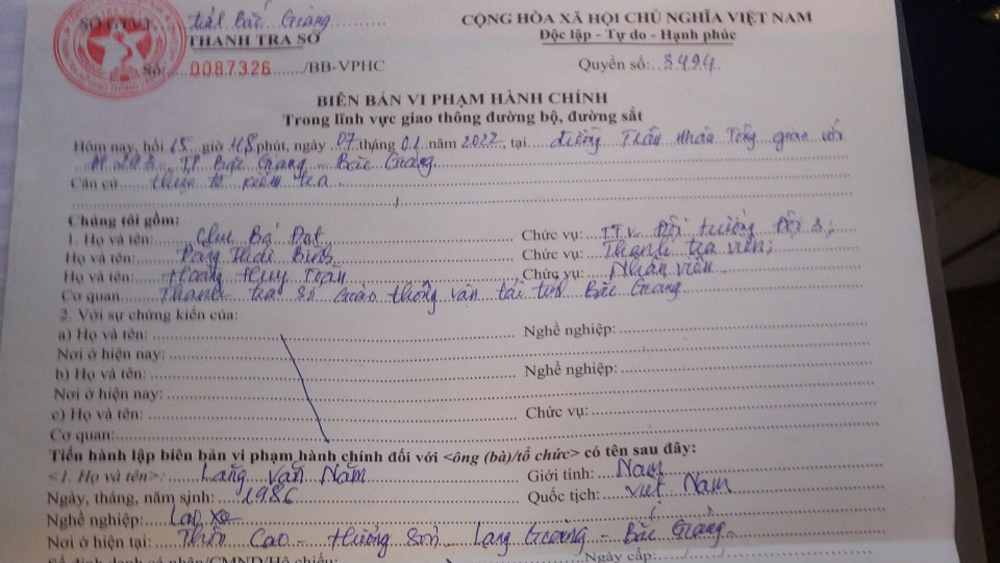 SỞ GTVT tỉnh Bắc Giang
THANH TRA SỞ
Số: 0087326 /BB-VPHC
CỘNG HÒA XÃ HỘI CHỦ NGHĨA VIỆT NAM
Độc lập - Tự do - Hạnh phúc
Quyển số: 3494
BIÊN BẢN VI PHẠM HÀNH CHÍNH
Trong lĩnh vực giao thông đường bộ, đường sắt
Hôm nay, hồi 15 giờ 45 phút, ngày 07 tháng 01 năm 2022, tại đường Thân Nhân Tông giao với
TP Bắc Giang - Bắc Giang
Căn cứ thực tế kiểm tra
Chúng tôi gồm:
1. Họ và tên: Chu Bá Đạt Chức vụ: TTV Đội trưởng Đội 3;
Họ và tên: Thái Bình Chức vụ: Thanh tra viên;
Họ và tên: Hoàng Huy Toàn Chức vụ: Nhân viên
Cơ quan Thanh tra Sở Giao thông vận tải tỉnh Bắc Giang
2. Với sự chứng kiến của:
a) Họ và tên: Nghề nghiệp:
Nơi ở hiện nay:
b) Họ và tên: Nghề nghiệp:
Nơi ở hiện nay:
c) Họ và tên: Chức vụ:
Cơ quan:
Tiến hành lập biên bản vi phạm hành chính đối với <ông (bà)/tổ chức> có tên sau đây:
<1. Họ và tên>: Lăng Văn Năm Giới tính: Nam
Ngày, tháng, năm sinh: 1986 Quốc tịch: Việt Nam
Nghề nghiệp: Lái xe
Nơi ở hiện tại: Thôn Cao - Hương Sơn - Lạng Giang - Bắc Giang
Số định danh cá nhân/CMND/Hộ chiếu: Ngày cấp: